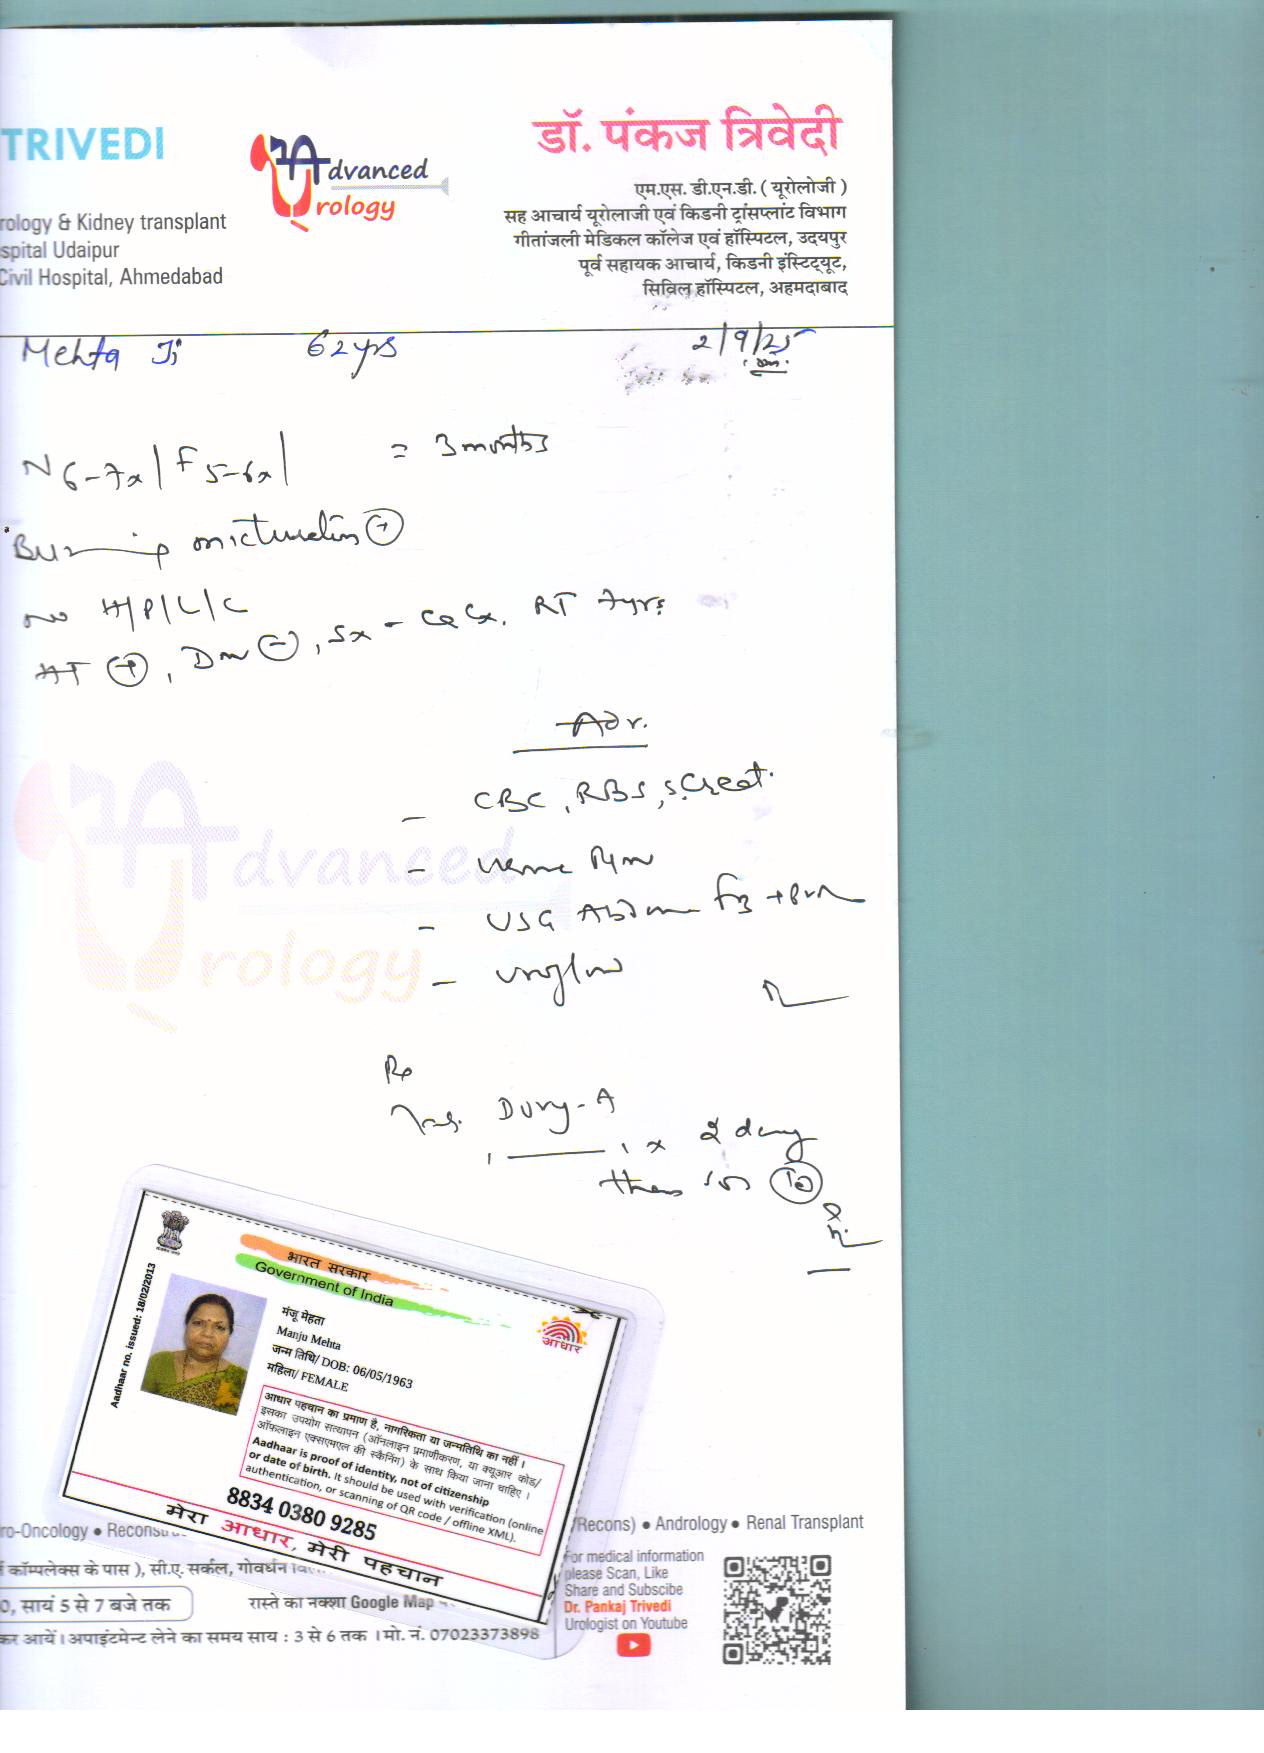 TRIVEDI
Advanced
Urology
डॉ. पंकज त्रिवेदी
एम.एस. डी.एन.डी. ( यूरोलोजी )
rology & Kidney transplant
सह आचार्य यूरोलाजी एवं किडनी ट्रांसप्लांट विभाग
spital Udaipur
गीतांजली मेडिकल कॉलेज एवं हॉस्पिटल, उदयपुर
Civil Hospital, Ahmedabad
पूर्व सहायक आचार्य, किडनी इंस्टिट्यूट,
सिविल हॉस्पिटल, अहमदाबाद
Mehta Ji 62 yrs 2/9/25
N 6-7x | F 5-6x | = 3 months
Burning micturation +
no H/P/L/C
HT +, Dm -, Sx - Ca Cx. RT 7yrs
Adv.
- CBC, RBS, S.Creat.
- Urine R/m
- USG Abdomen + PVR
- Uroflow
Advanced
Urology
Rp
Dury-A
x 2 day
then
भारत सरकार
Government of India
Aadhaar no. issued: 18/02/2013
मंजू मेहता
Manju Mehta
जन्म तिथि/ DOB: 06/05/1963
महिला/ FEMALE
आधार
आधार पहचान का प्रमाण है, नागरिकता या जन्मतिथि का नहीं ।
इसका उपयोग सत्यापन (ऑनलाइन प्रमाणीकरण, या क्यूआर कोड/
ऑफलाइन एक्सएमएल की स्कैनिंग) के साथ किया जाना चाहिए ।
Aadhaar is proof of identity, not of citizenship
or date of birth. It should be used with verification (online
authentication, or scanning of QR code / offline XML).
8834 0380 9285
मेरा आधार, मेरी पहचान
ro-Oncology ● Reconstru
/Recons) ● Andrology ● Renal Transplant
कॉम्पलेक्स के पास ), सी.ए. सर्कल, गोवर्धन
0, सायं 5 से 7 बजे तक
रास्ते का नक्शा Google Map
कर आयें । अपाइंटमेन्ट लेने का समय साय : 3 से 6 तक । मो. नं. 07023373898
For medical information
please Scan, Like
Share and Subscibe
Dr. Pankaj Trivedi
Urologist on Youtube